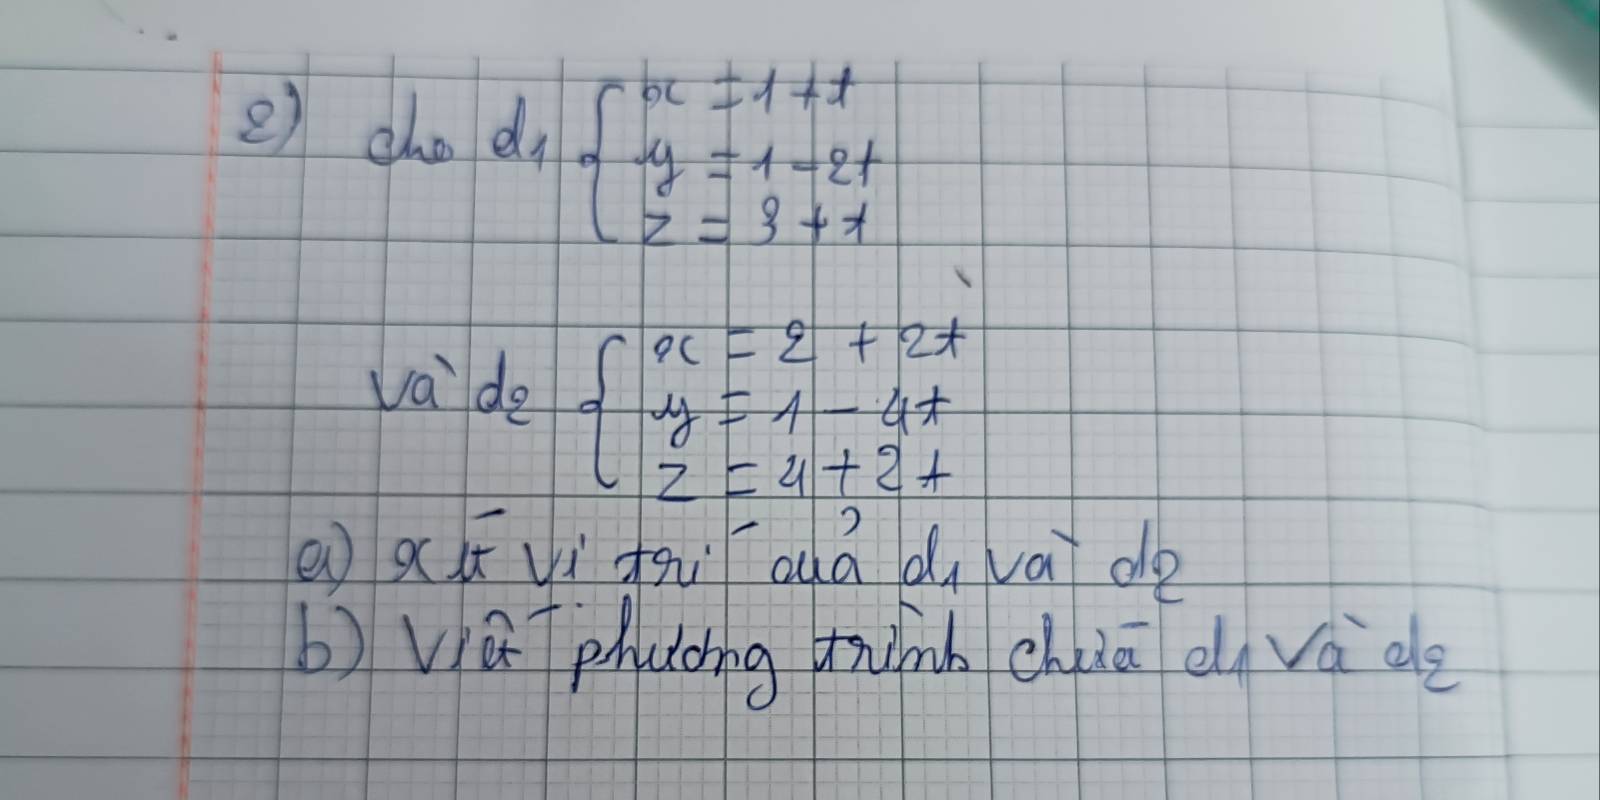 2) cho d1 { x = 1 + t
y = 1 - 2t
z = 3 + t
và d2 { x = 2 + 2t
y = 1 - 4t
z = 4 + 2t
a) xét vị trí của d1 và d2
b) Viết phương trình chứa d1 và d2